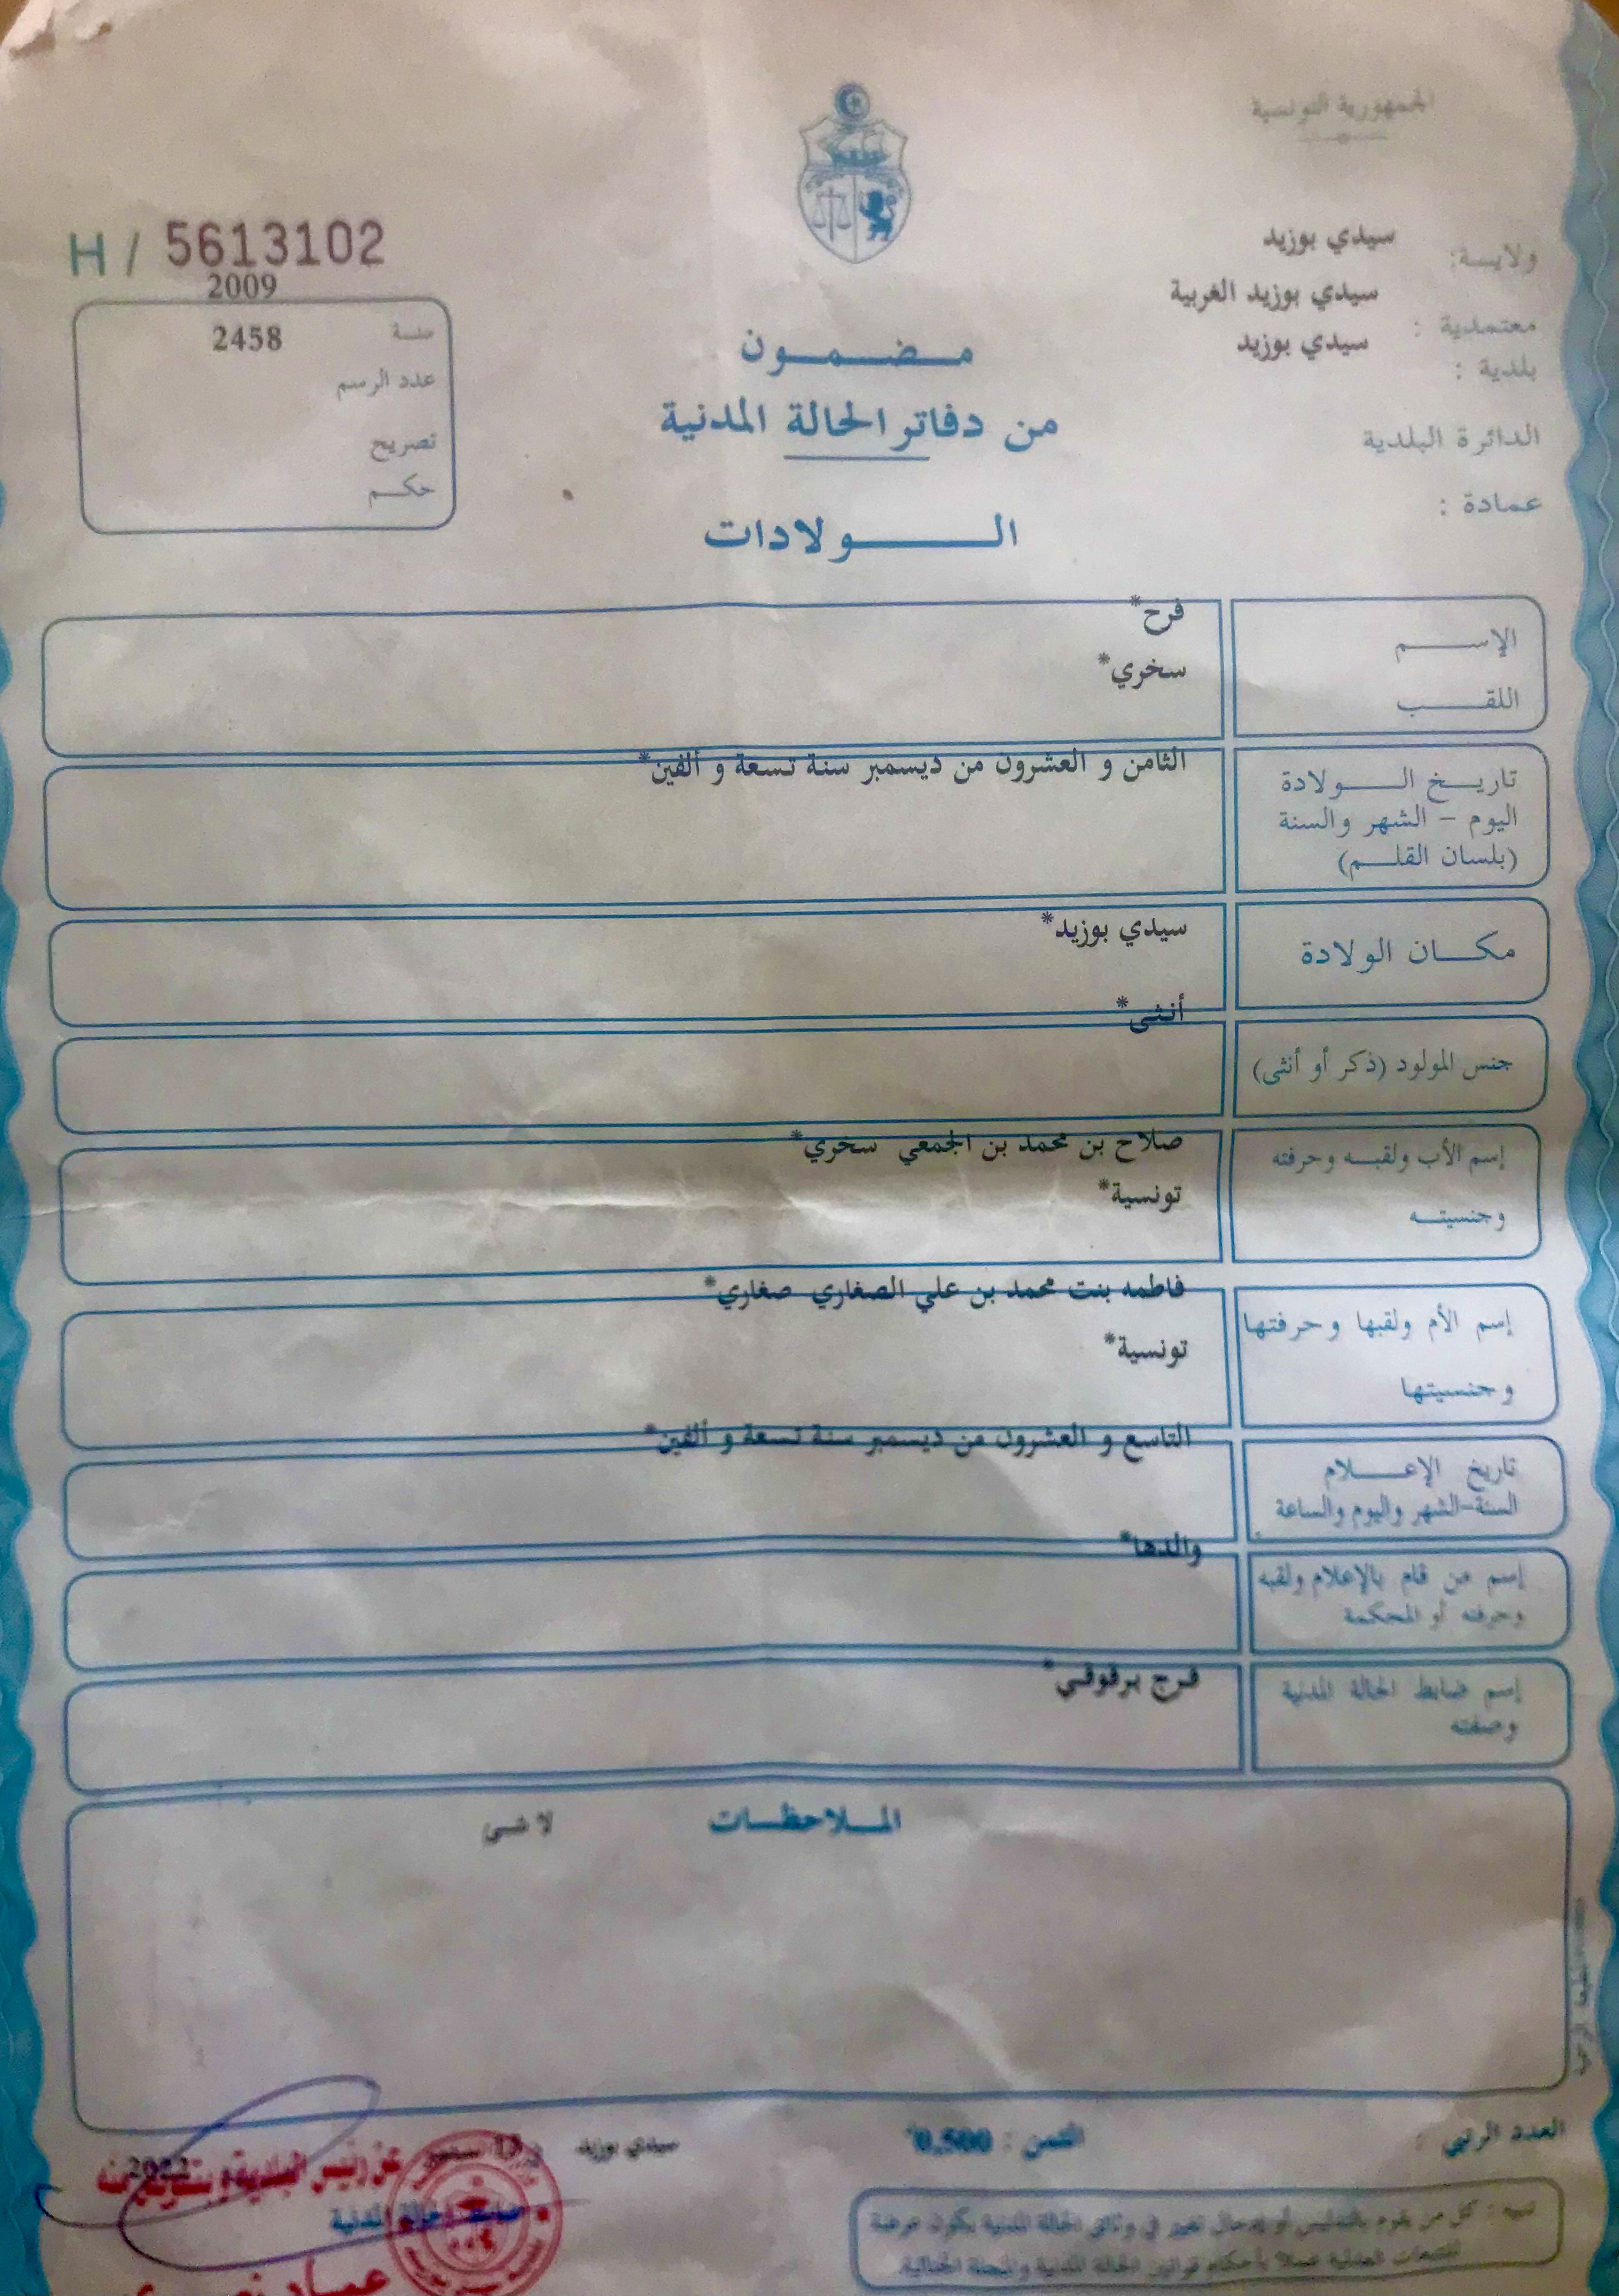 الجمهورية التونسية
ولاية: سيدي بوزيد
معتمدية : سيدي بوزيد الغربية
بلدية : سيدي بوزيد
الدائرة البلدية
عمادة :
H / 5613102
2009
سنة 2458
عدد الرسم
تصريح
حكم
مضمون
من دفاتر الحالة المدنية
الولادات
الإسم فرح*
اللقب سخري*
تاريخ الولادة الثامن و العشرون من ديسمبر سنة تسعة و ألفين*
اليوم - الشهر والسنة
(بلسان القلم)
مكان الولادة سيدي بوزيد*
جنس المولود (ذكر أو أنثى) أنثى*
إسم الأب ولقبه وحرفته صلاح بن محمد بن الجمعي سخري*
وجنسيته تونسية*
إسم الأم ولقبها وحرفتها فاطمه بنت محمد بن علي الصغاري صغاري*
وجنسيتها تونسية*
تاريخ الإعلام التاسع و العشرون من ديسمبر سنة تسعة و ألفين*
السنة-الشهر واليوم والساعة
إسم من قام بالإعلام ولقبه والدها*
وحرفته أو المحكمة
إسم ضابط الحالة المدنية فرج برقوقي*
وصفته
الملاحظات لا شئ
العدد الرتبي :
الثمن : 0,500
سيدي بوزيد في 13 2022
عن رئيس البلدية و بتفويض منه
ضابط الحالة المدنية
عماد
تنبيه : كل من يقوم بالتدليس أو إدخال تغيير في وثائق الحالة المدنية يكون عرضة
للتتبعات العدلية عملا بأحكام قوانين الحالة المدنية والمجلة الجنائية.